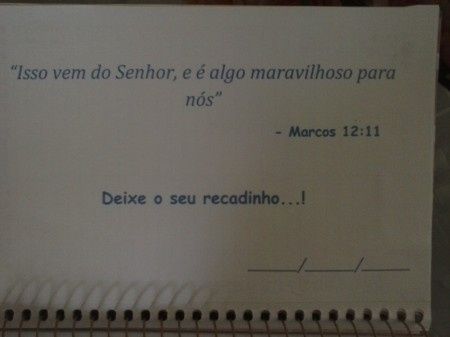 “Isso vem do Senhor, e é algo maravilhoso para
nós”
- Marcos 12:11
Deixe o seu recadinho...!
______/______/______